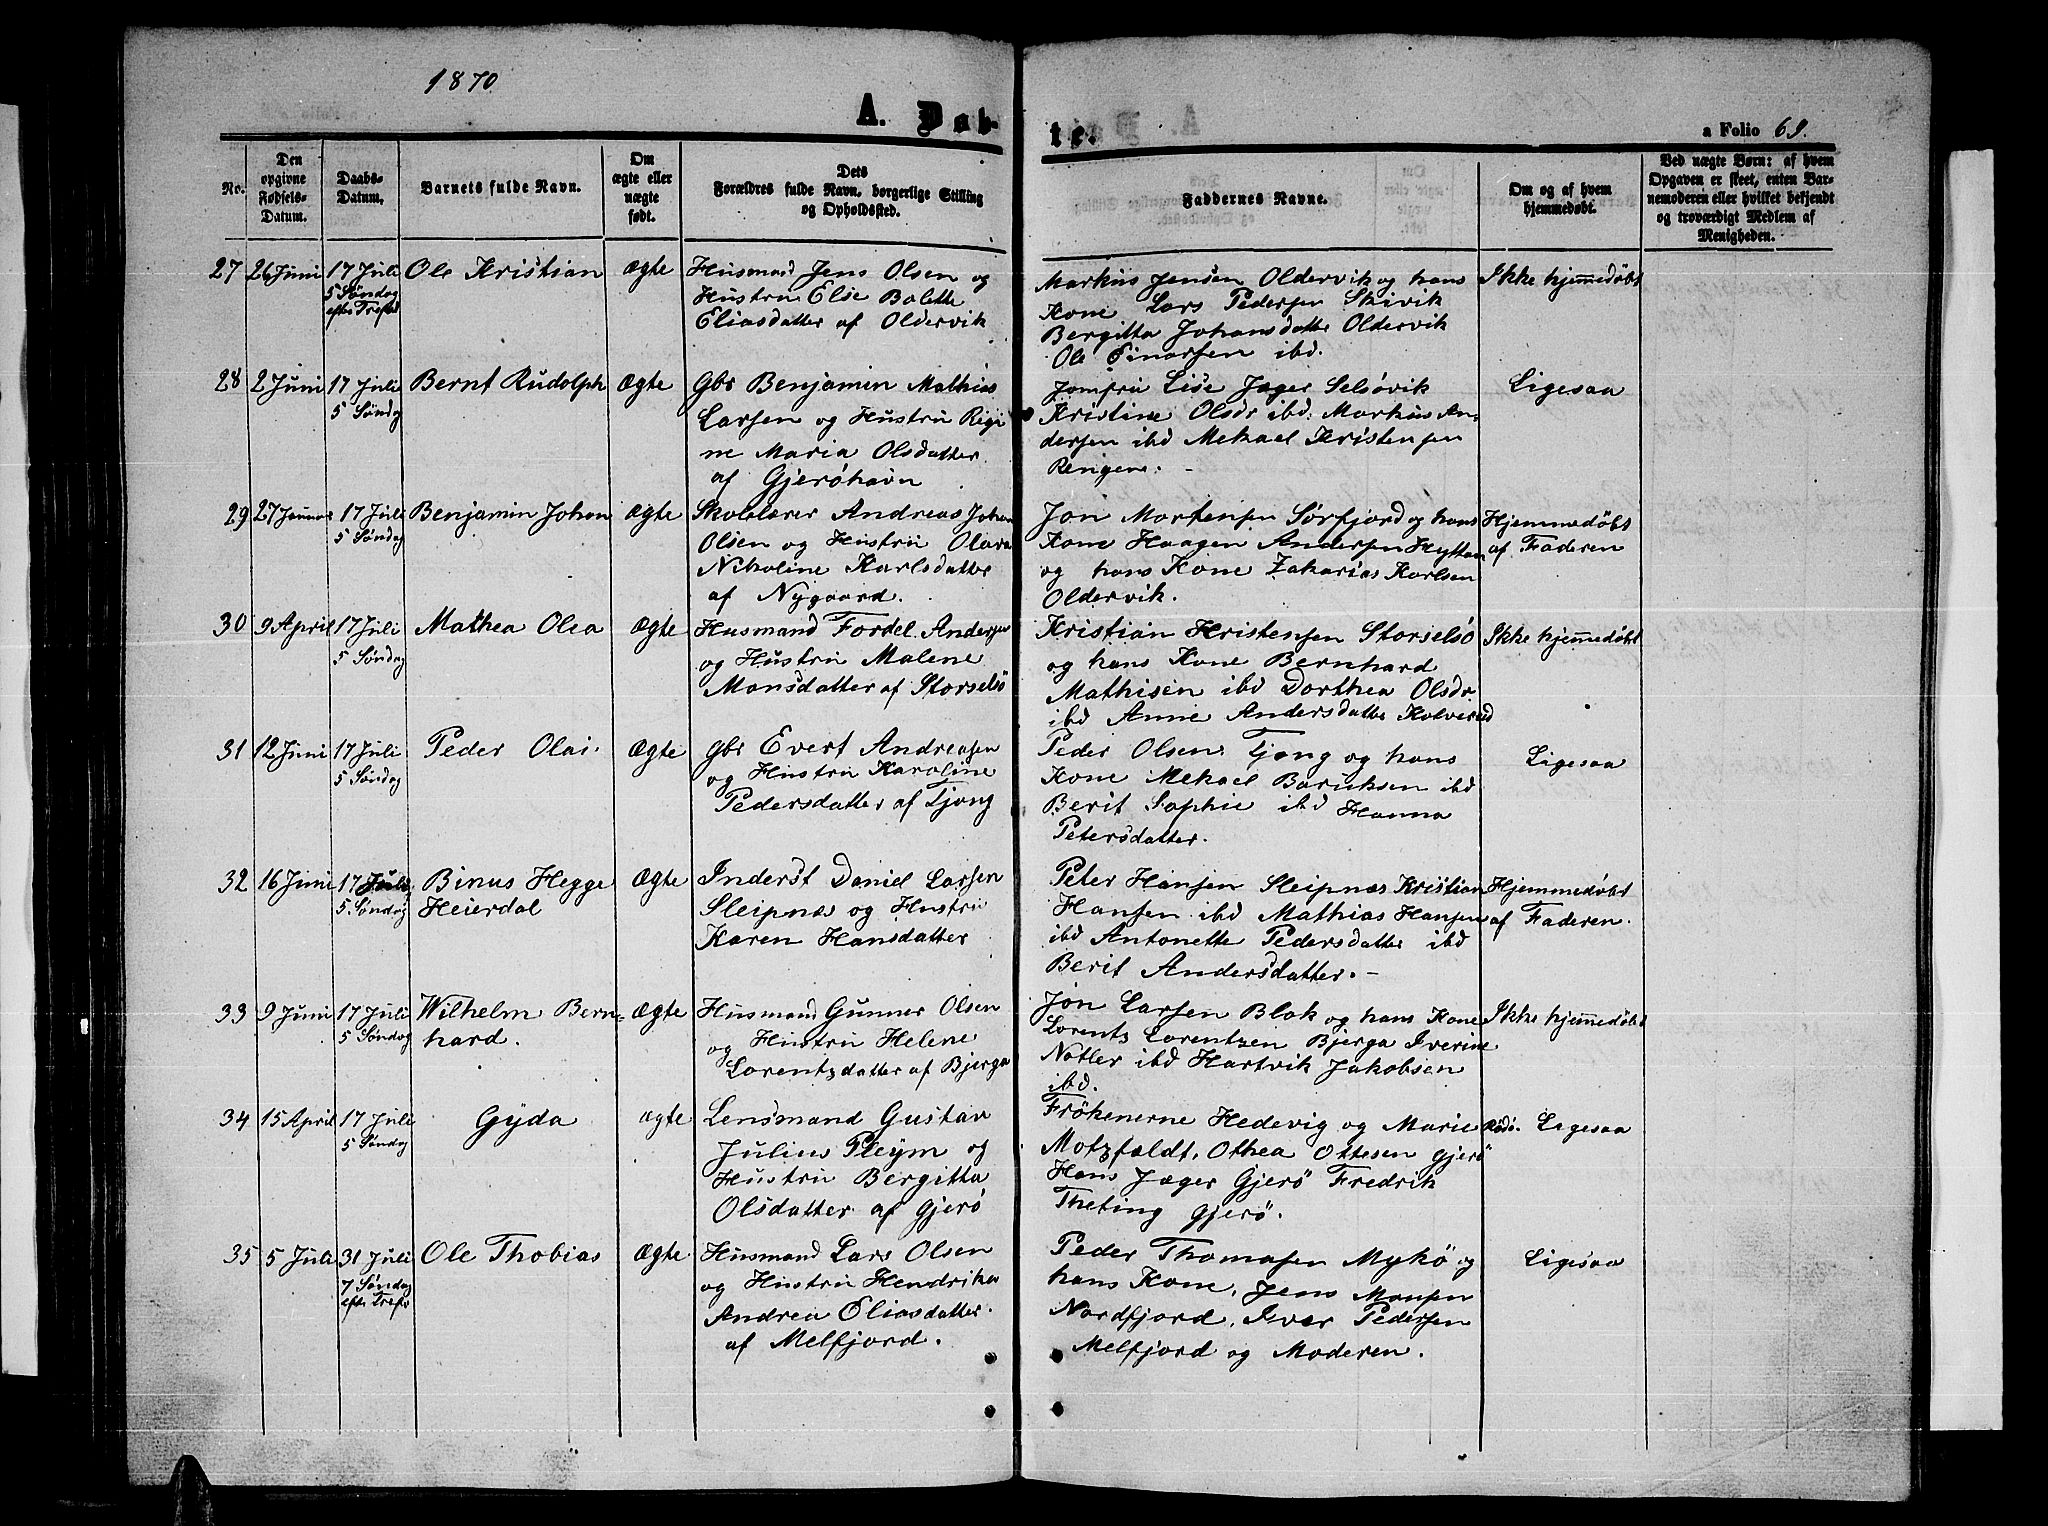 1870
A. Døb-
te.
a Folio 69.
No.
Den
opgivne
Fødsels-
Datum.
Daabs-
Datum.
Barnets fulde Navn.
Om
ægte eller
uægte
født.
Dets
Forældres fulde Navn, borgerlige Stilling
og Opholdssted.
Faddernes Navne.
Om og af hvem
hjemmedøbt.
Ved uægte Børn: af hvem
Opgaven er skeet, enten Bar-
nemoderen eller hvilket bekjendt
og troværdigt Medlem af
Menigheden.
27 26 Juni 17 Juli
5 Søndag
efter Trefo
Ole Kristian
ægte
Husmand Jens Olsen og
Hustru Else Bolette
Eliasdatter af Oldervik
Markus Jensen Oldervik og hans
Kone Lars Pedersen Skivik
Bergitta Johansdatter Oldervik
Ole Einarsen ibd.
Ikke hjemmedøbt
28 2 Juni 17 Juli
5 Søndag
Bernt Rudolph
Ægte
Gbr Benjamin Mathias
Larsen og Hustru Regi
ne Maria Olsdatter
af Gjerøhavn
Jomfru Lise Jæger Selsøvik
Kristine Olsdr ibd. Markus An-
dersen ibd Mekael Kristensen
Rengen. -
Ligesaa
29 27 Januar 17 Juli
5 Søndag
Benjamin Johan
ægte
Skolelærer Andreas Johan
Olsen og Hustru Olava
Nikoline Karlsdatter
af Nygaard.
Jon Mortensen Sørfjord og hans
Kone Haagen Andersen Hyttan
og hans Kone Zakarias Karlsen
Oldervik.
Hjemmedøbt
af Faderen
30 9 April 17 Juli
5 Søndag
Mathea Olea
Ægte
Husmand Fordel Andersen
og Hustru Malene
Monsdatter af Storselsö
Kristian Kristensen Storselsö
og hans Kone Bernhard
Mathisen ibd Dorthea Olsdr
ibd Anne Andersdatter Kolverud
Ikke hjemmedøbt
31 12 Juni 17 Juli
5 Søndag
Peder Olai.
Ægte
Gbr Evert Andreasen
og Hustru Karoline
Pedersdatter af Tjong
Peder Olsen Tjong og hans
Kone Mekael Baruksen ibd
Berit Sophie ibd Hanna
Petersdatter.
Ligesaa
32 16 Juni 17 Juli
5. Søndag
Binus Hegge
Heierdal
Ægte
Inderst Daniel Larsen
Sleipnæs og Hustru
Karen Hansdatter
Peter Hansen Sleipnæs Kristian
Hansen ibd Mathias Hansen
ibd Antonette Pedersdatter ibd
Berit Andersdatter. -
Hjemmedøbt
af Faderen.
33 9 Juni 17 Juli
5 Søndag
Wilhelm Bern=
hard.
Ægte
Husmand Gunner Olsen
og Hustru Helene
Lorentzdatter af Bjerga
Jon Larsen Blok og hans Kone
Lorents Lorentzen Bjerga Iverine
Notler ibd Hartvik Jakobsen
ibd.
Ikke hjemmedøbt
34 15 April 17 Juli
5 Søndag
Gÿda
ægte
Lensmand Gustav
Julius Pleÿm og
Hustru Bergitta
Olsdatter af Gjerö
Frökenerne Hedevig og Marie Rödö.
Motzfeldt, Othea Ottesen Gjerö
Hans Jæger Gjerö Fredrik
Theting Gjerö.
Ligesaa
35 5 Juli 31 Juli
7 Søndag
efter Trefo
Ole Thobias
Ægte
Husmand Lars Olsen
og Hustru Hendrika
Andrea Eliasdatter.
af Melfjord.
Peder Thomasen Mykö og
hans Kone, Jens Monsen
Nordfjord, Iver Pedersen
Melfjord og Moderen.
Ligesaa